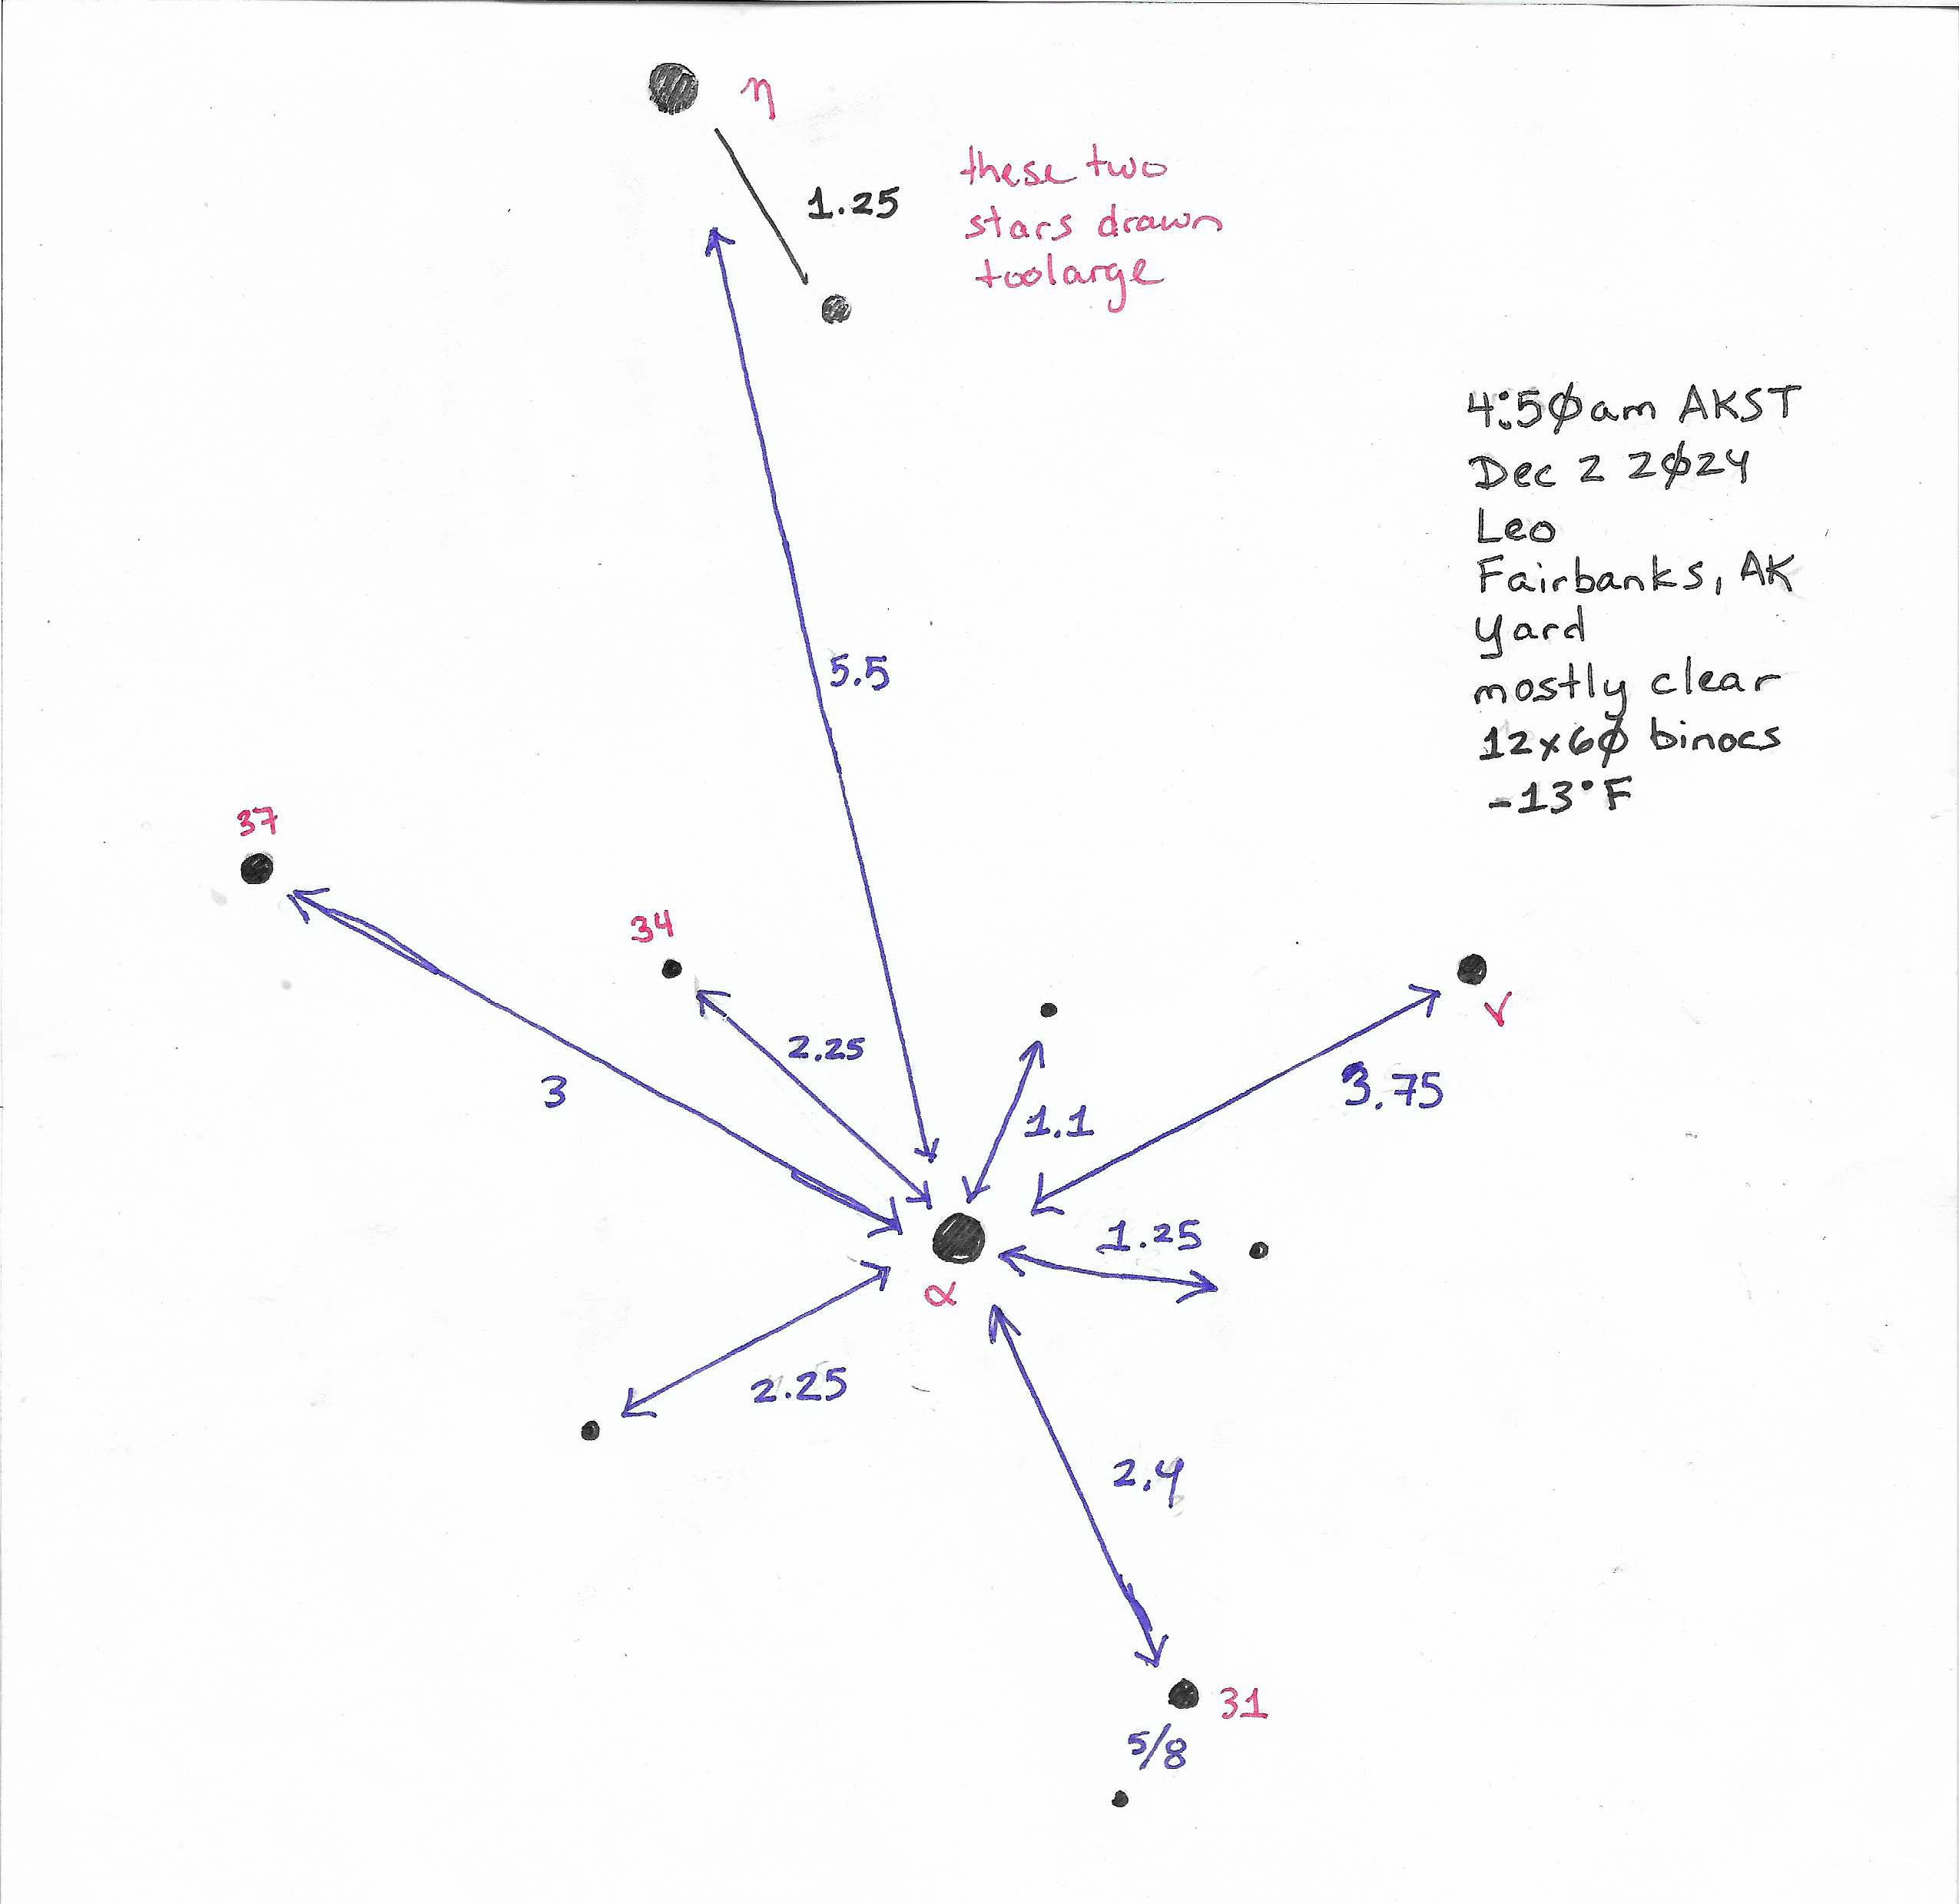 η
1.25
these two
stars drawn
too large
4:50am AKST
Dec 2 2024
Leo
Fairbanks, AK
yard
mostly clear
12x60 binocs
-13°F
5.5
37
34
2.25
3
ν
1.1
3.75
1.25
α
2.25
2.4
31
5/8